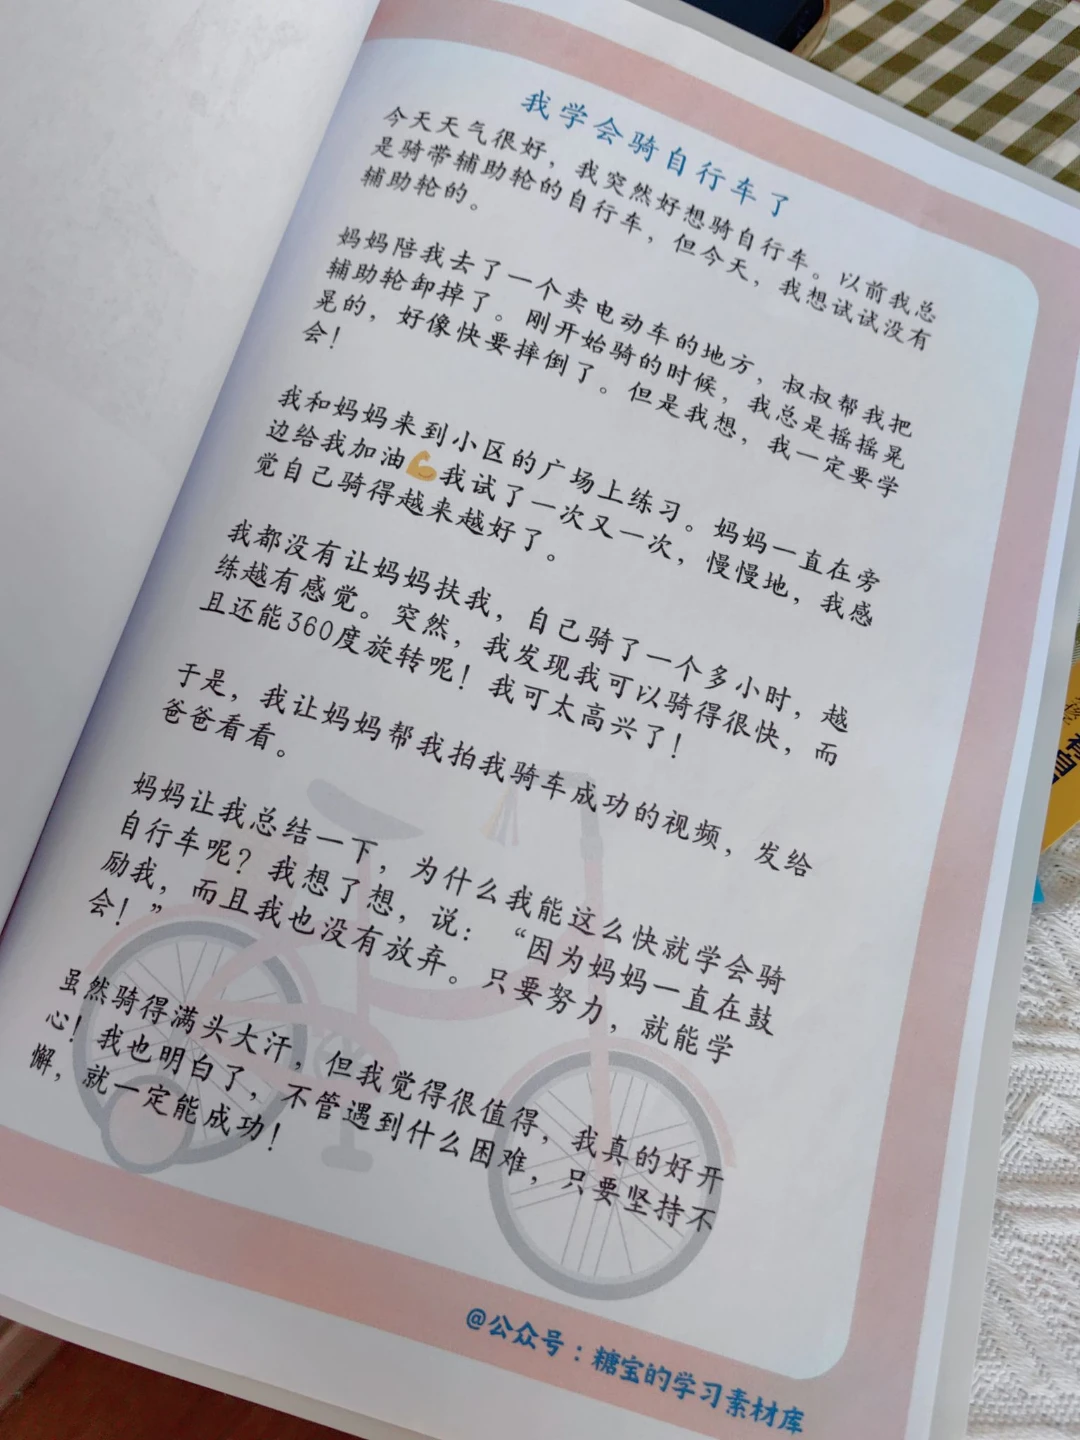 我学会骑自行车了
今天天气很好，我突然好想骑自行车。以前我总
是骑带辅助轮的自行车，但今天，我想试试没有
辅助轮的。
妈妈陪我去了一个卖电动车的地方，叔叔帮我把
辅助轮卸掉了。刚开始骑的时候，我总是摇摇晃
晃的，好像快要摔倒了。但是我想，我一定要学
会！
我和妈妈来到小区的广场上练习。妈妈一直在旁
边给我加油💪我试了一次又一次，慢慢地，我感
觉自己骑得越来越好了。
我都没有让妈妈扶我，自己骑了一个多小时，越
练越有感觉。突然，我发现我可以骑得很快，而
且还能360度旋转呢！我可太高兴了！
于是，我让妈妈帮我拍我骑车成功的视频，发给
爸爸看看。
妈妈让我总结一下，为什么我能这么快就学会骑
自行车呢？我想了想，说：“因为妈妈一直在鼓
励我，而且我也没有放弃。只要努力，就能学
会！”
虽然骑得满头大汗，但我觉得很值得，我真的好开
心！我也明白了，不管遇到什么困难，只要坚持不
懈，就一定能成功！
@公众号：糖宝的学习素材库